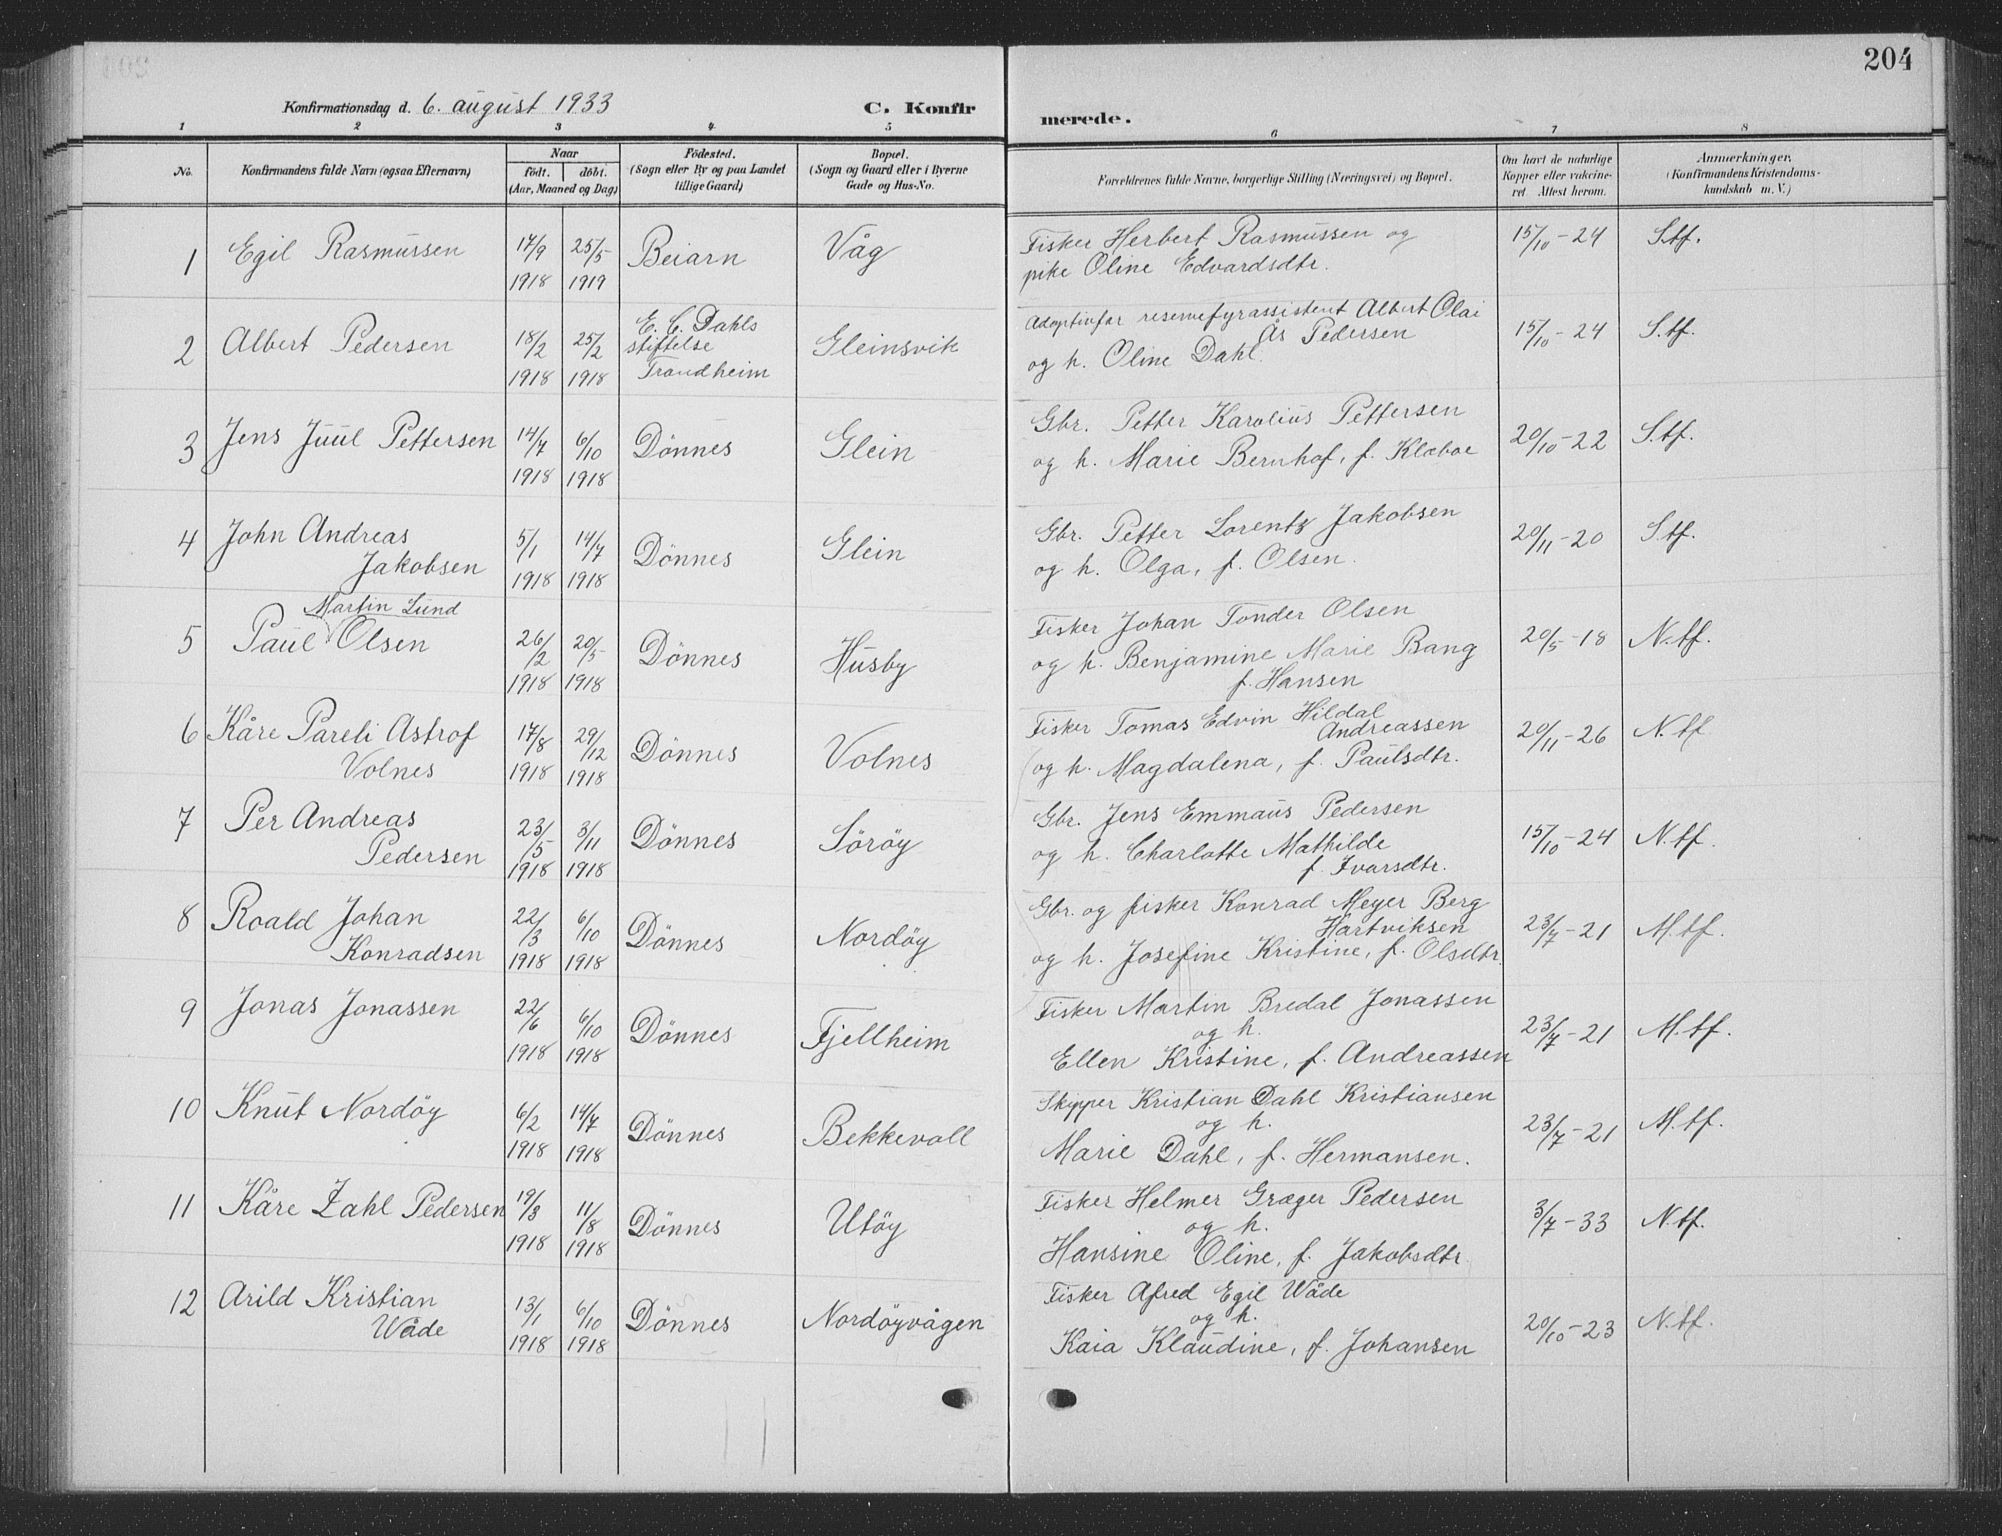 204
Konfirmationsdag d. 6. august 1933
C. Konfirmerede.
1 2 3 4 5 6 7 8
No.
Konfirmandens fulde Navn (ogsaa Efternavn)
Naar
født. døbt.
(Aar, Maaned og Dag)
Fødested.
(Sogn eller By og paa Landet
tillige Gaard)
Bopæl.
(Sogn og Gaard eller i Byerne
Gade og Hus-No.
Forældrenes fulde Navne, borgerlige Stilling (Næringsvei) og Bopæl.
Om havt de naturlige
Kopper eller vakcine-
ret Attest herom.
Anmerkninger.
(Konfirmandens Kristendoms-
kundskab m. V.)
1 Egil Rasmussen 17/9 1918 25/5 1919 Beiarn Våg
Fisker Herbert Rasmussen og
pike Oline Edvardsdtr.
15/10-24 S.tf.
2 Albert Pedersen 18/2 1918 25/2 1918
E. C. Dahls
stiftelse
Trondheim
Gleinsvik
Adoptivfar reservefyrassistent Albert Olai
Ås Pedersen
og h. Oline Dahl.
15/10-24 S.tf.
3 Jens Juul Pettersen 14/7 1918 6/10 1918 Dönnes Glein
Gbr. Petter Karolius Pettersen
og h. Marie Bernhof, f. Klæboe
20/10-22 S.tf.
4 John Andreas
Jakobsen
5/1 1918 14/7 1918 Dönnes Glein
Gbr. Petter Lorentz Jakobsen
og h. Olga, f. Olsen.
20/11-20 S.tf.
Martin Lund
5 Paul Olsen 26/2 1918 20/5 1918 Dönnes Husby
Fisker Johan Tonder Olsen
og h. Benjamine Marie Bang
f. Hansen
20/5-18 N.tf.
6 Kåre Pareli Astrof
Volnes
17/8 1918 29/12 1918 Dönnes Volnes
Fisker Tomas Edvin Hildal
Andreassen
og h. Magdalena, f. Paulsdtr.
20/11-26 N.tf
7 Per Andreas
Pedersen
23/5 1918 3/11 1918 Dönnes Söröy
Gbr. Jens Emmaus Pedersen
og h. Charlotte Mathilde
f. Ivarsdtr.
15/10-24 N.tf.
8 Roald Johan
Konradsen
22/3 1918 6/10 1918 Dönnes Nordöy
Gbr. og fisker Konrad Meyer Berg
Hartviksen
og h. Josefine Kristine, f. Olsdtr.
23/7-21 M.tf.
9 Jonas Jonassen 22/6 1918 6/10 1918 Dönnes Fjellheim
Fisker Martin Bredal Jonassen
og h.
Ellen Kristine, f. Andreassen
23/7-21 M.tf.
10 Knut Nordöy 6/2 1918 14/7 1918 Dönnes Bekkevoll
Skipper Kristian Dahl Kristiansen
og h.
Marie Dahl, f. Hermansen.
23/7-21 M.tf.
11 Kåre Zahl Pedersen 19/3 1918 11/8 1918 Dönnes Utöy
Fisker Helmer Græger Pedersen
og h.
Hansine Oline, f. Jakobsdtr.
3/7-33 N.tf.
12 Arild Kristian
Wåde
13/1 1918 6/10 1918 Dönnes Nordöyvågen
Fisker Afred Egil Wåde
og h.
Kaia Klaudine, f. Johansen
20/10-23 N.tf.